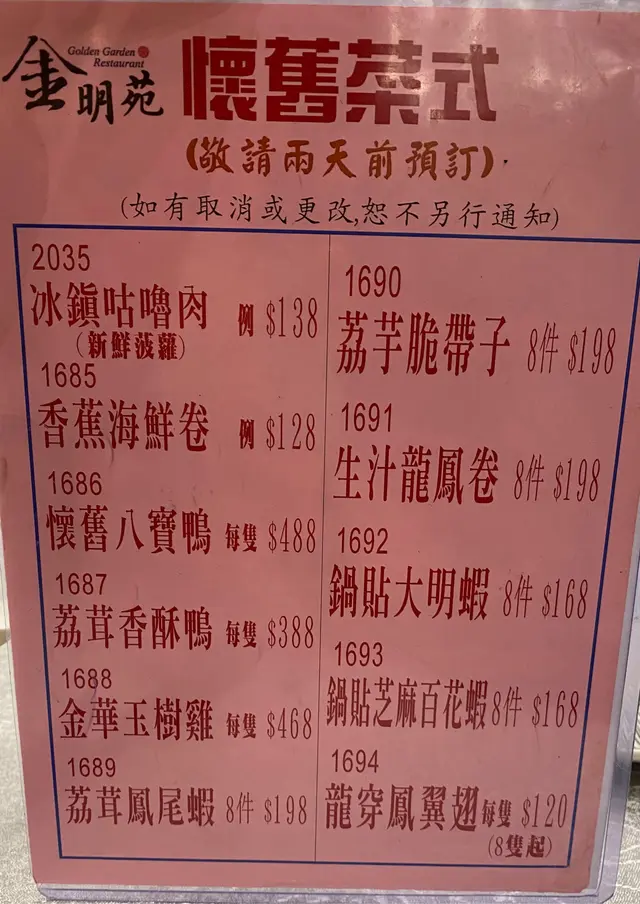 金明苑
Golden Garden
Restaurant
懷舊菜式
(敬請兩天前預訂)
(如有取消或更改,恕不另行通知)
2035
冰鎮咕嚕肉 例 $138
(新鮮菠蘿)
1685
香蕉海鮮卷 例 $128
1686
懷舊八寶鴨 每隻 $488
1687
荔茸香酥鴨 每隻 $388
1688
金華玉樹雞 每隻 $468
1689
荔茸鳳尾蝦 8件 $198
1690
荔芋脆帶子 8件 $198
1691
生汁龍鳳卷 8件 $198
1692
鍋貼大明蝦 8件 $168
1693
鍋貼芝麻百花蝦 8件 $168
1694
龍穿鳳翼翅 每隻 $120
(8隻起)